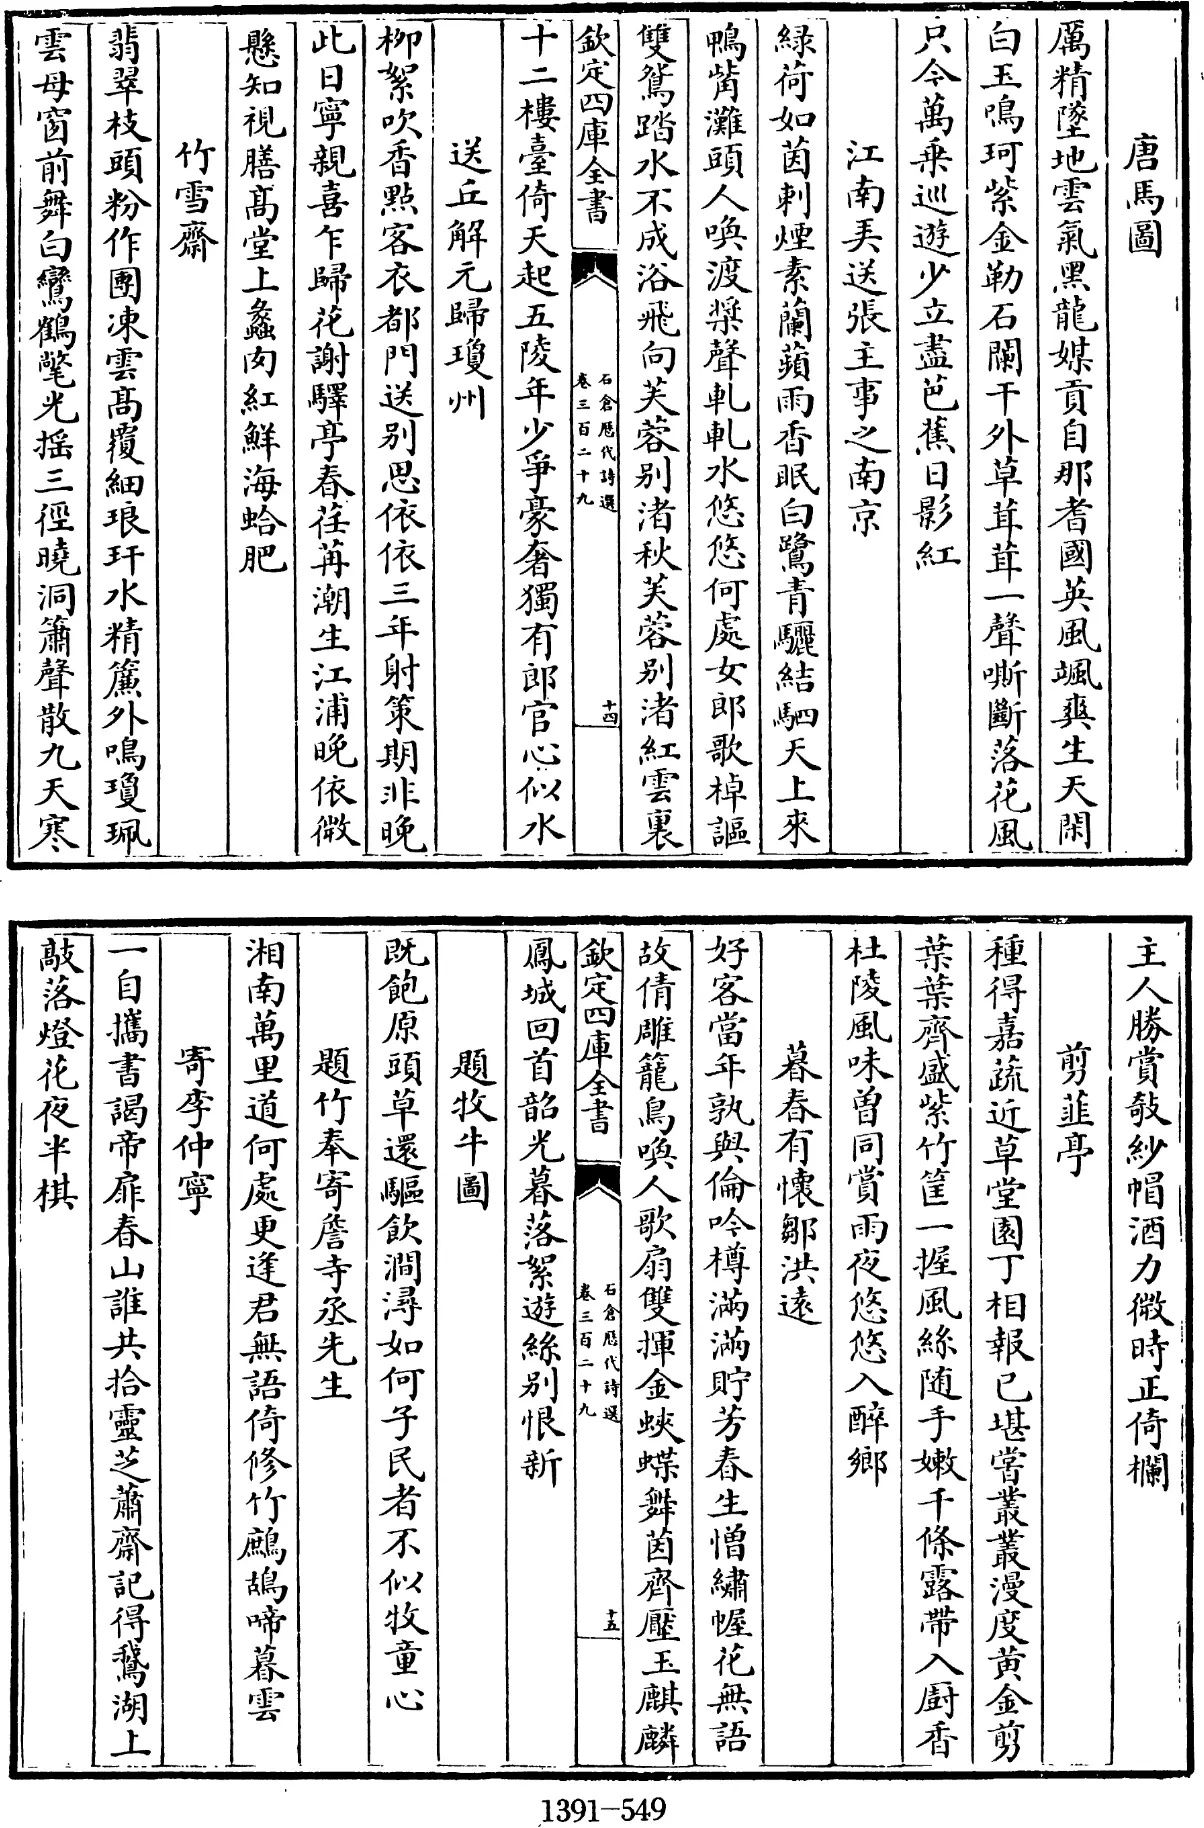 唐馬圖
厲精墜地雲氣黑龍媒貢自那耆國英風颯爽生天閑
白玉鳴珂紫金勒石闌干外草茸茸一聲嘶斷落花風
只今萬乗巡遊少立盡芭蕉日影紅
江南弄送張主事之南京
緑荷如茵刺煙素蘭蘋雨香眠白鷺青驪結駟天上來
鴨觜灘頭人喚渡槳聲軋軋水悠悠何處女郎歌棹謳
雙鴛踏水不成浴飛向芙蓉别渚秋芙蓉别渚紅雲裏
欽定四庫全書
石倉歴代詩選
卷三百二十九
十四
十二樓臺倚天起五陵年少爭豪奢獨有郎官心似水
送丘解元歸瓊州
柳絮吹香點客衣都門送别思依依三年射策期非晩
此日寧親喜乍歸花謝驛亭春荏苒潮生江浦晩依微
懸知視膳髙堂上蠡肉紅鮮海蛤肥
竹雪齋
翡翠枝頭粉作團凍雲髙覆細琅玕水精簾外鳴瓊珮
雲母窗前舞白鸞鶴氅光揺三徑曉洞簫聲散九天寒
主人勝賞敧紗帽酒力微時正倚欄
剪韮亭
種得嘉蔬近草堂園丁相報已堪嘗叢叢漫度黄金剪
葉葉齊盛紫竹筐一握風絲随手嫩千條露帶入厨香
杜陵風味曽同賞雨夜悠悠入醉鄉
暮春有懷鄒洪遠
好客當年孰與倫吟樽滿滿貯芳春生憎繡幄花無語
故倩雕籠鳥喚人歌扇雙揮金蛺蝶舞茵齊壓玉麒麟
欽定四庫全書
石倉歴代詩選
卷三百二十九
十五
鳳城回首韶光暮落絮遊絲别恨新
題牧牛圖
既飽原頭草還驅飲澗潯如何子民者不似牧童心
題竹奉寄詹寺丞先生
湘南萬里道何處更逢君無語倚修竹鷓鴣啼暮雲
寄李仲寧
一自攜書謁帝扉春山誰共拾靈芝蕭齋記得鵞湖上
敲落燈花夜半棋
1391-549